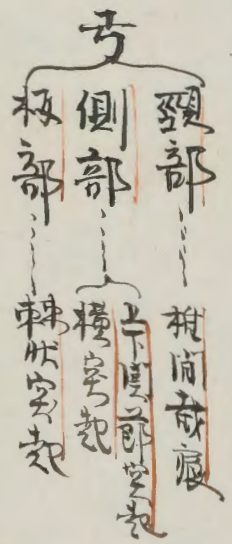 弓
頸部
椎間截痕
側部
上下関節突起
横突起
板部
棘状突起